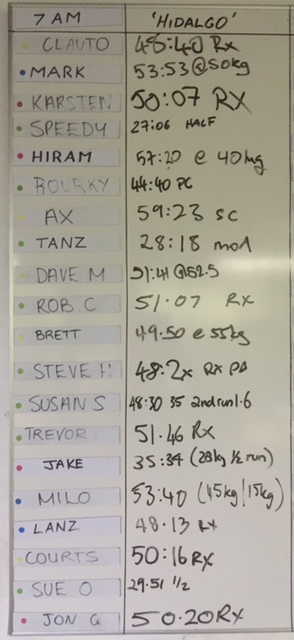 7 AM 'HIDALGO'
CLAUTO 48:40 Rx
MARK 53:53 @50kg
KARSTEN 50:07 RX
SPEEDY 27:06 HALF
HIRAM 57:20 @ 40kg
ROURKY 44:40 PC
AX 59:23 SC
TANZ 28:18 mod
DAVE M 51:41 @52.5
ROB C 51.07 RX
BRETT 49.50 @ 55kg
STEVE H 48:2x RX PD
SUSAN S 48:30 35 2nd run 1.6
TREVOR 51.46 Rx
JAKE 35:34 (28kg ½ run)
MILO 53:40 (45kg/15kg)
LANZ 48.13 Rx
COURTS 50:16 RX
SUE O 29.51 1/2
JON G 50.20 RX